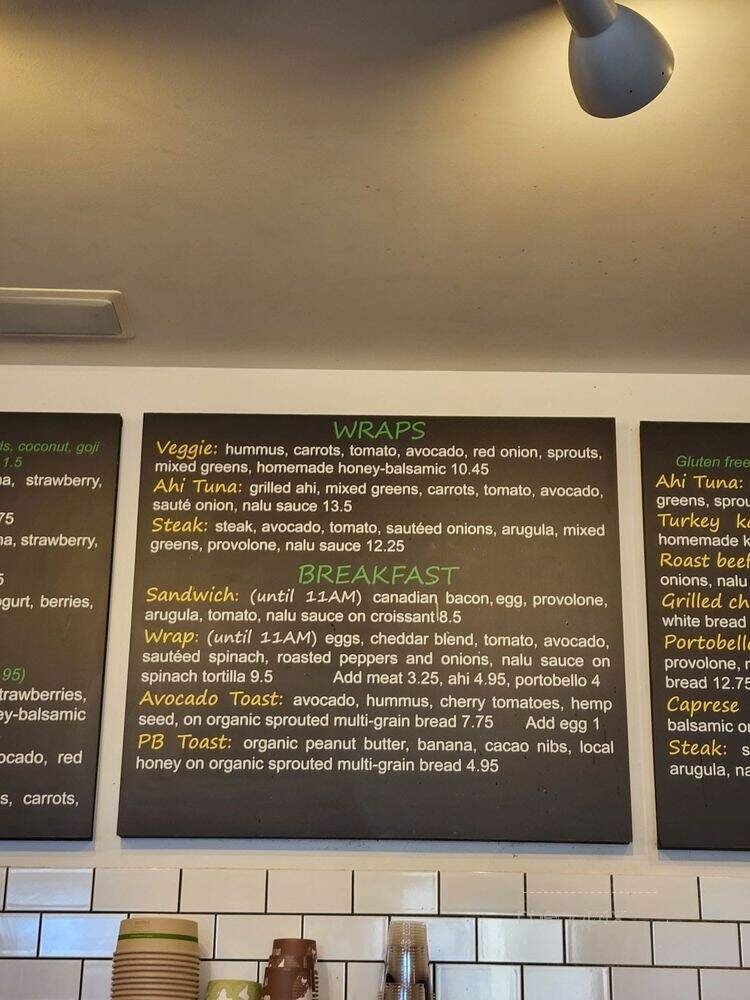 ds, coconut, goji
1.5
na, strawberry,
75
na, strawberry,
5
ogurt, berries,
.95)
trawberries,
ey-balsamic
ocado, red
s, carrots,
WRAPS
Veggie: hummus, carrots, tomato, avocado, red onion, sprouts,
mixed greens, homemade honey-balsamic 10.45
Ahi Tuna: grilled ahi, mixed greens, carrots, tomato, avocado,
sauté onion, nalu sauce 13.5
Steak: steak, avocado, tomato, sautéed onions, arugula, mixed
greens, provolone, nalu sauce 12.25
BREAKFAST
Sandwich: (until 11AM) canadian bacon, egg, provolone,
arugula, tomato, nalu sauce on croissant 8.5
Wrap: (until 11AM) eggs, cheddar blend, tomato, avocado,
sautéed spinach, roasted peppers and onions, nalu sauce on
spinach tortilla 9.5 Add meat 3.25, ahi 4.95, portobello 4
Avocado Toast: avocado, hummus, cherry tomatoes, hemp
seed, on organic sprouted multi-grain bread 7.75 Add egg 1
PB Toast: organic peanut butter, banana, cacao nibs, local
honey on organic sprouted multi-grain bread 4.95
Gluten free
Ahi Tuna:
greens, sprou
Turkey ka
homemade k
Roast beef
onions, nalu
Grilled ch
white bread
Portobello
provolone, r
bread 12.75
Caprese
balsamic on
Steak: s
arugula, na